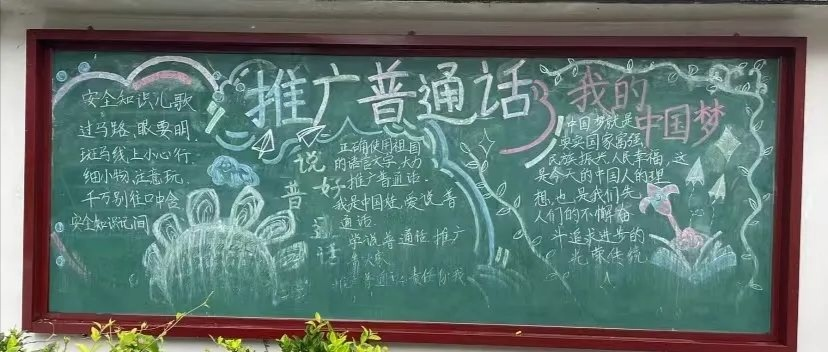 安全知识儿歌
过马路、眼要明,
斑马线上小心行.
细小物,注意玩,
千万别往口中含
安全知识记心间
推广普通话
说好普通话
正确使用祖国
的语言文字,大力
推广普通话.
我是中国娃,爱说普
通话.
毕说普通话 推广
我的
中国梦
中国梦就是
要实国家富强
民族振兴,人民幸福,这
是今天的中国人的理
想,也是我们先
人们的不懈奋
斗追求进步的
光荣传统